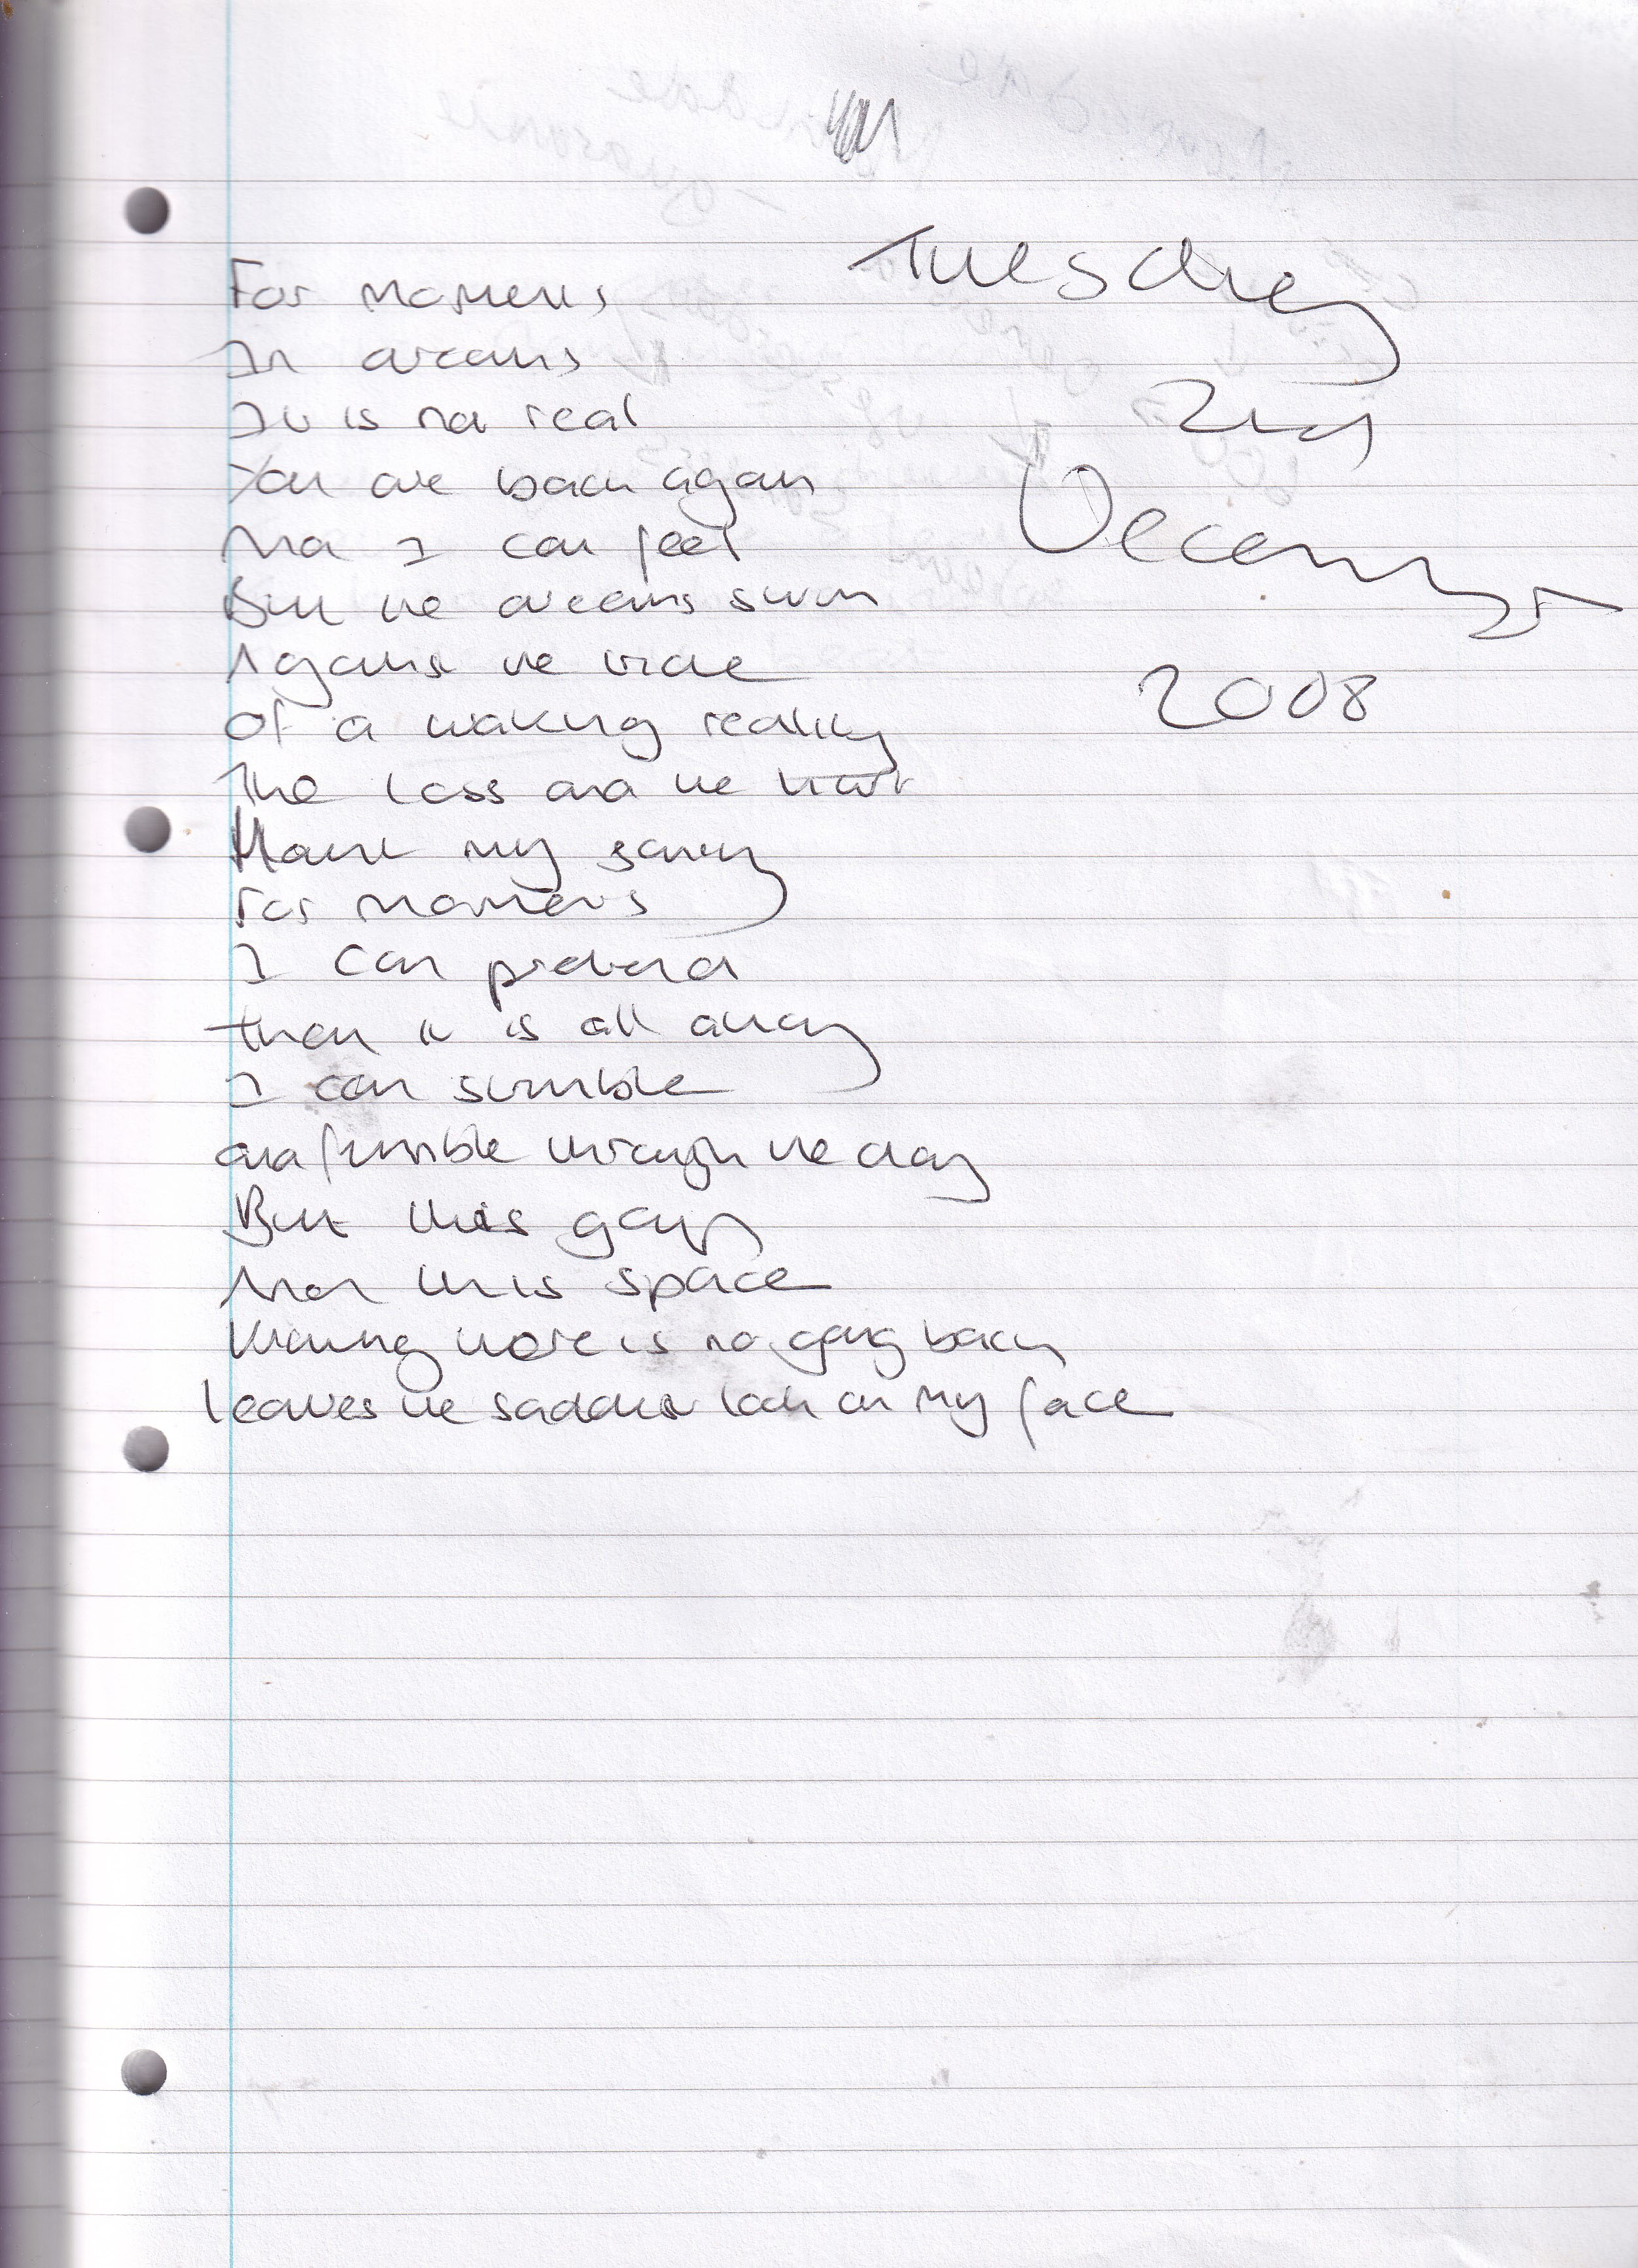 Tuesday
2nd
December
2008
For moments
In dreams
It is not real
You are back again
And I can feel
But the dreams swim
Against the tide
Of a waking reality
The loss and the hurt
Haunt my sanity
For moments
I can pretend
then it is all away
I can stumble
and fumble through the day
But this gap
And this space
Knowing there is no going back
leaves the saddest look on my face